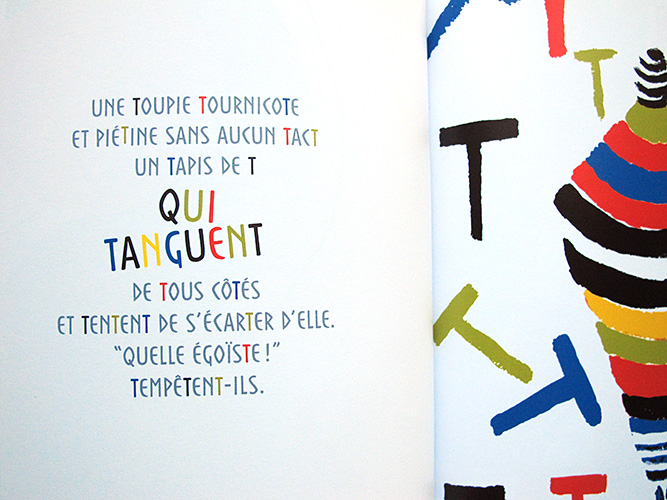 UNE TOUPIE TOURNICOTE
ET PIÉTINE SANS AUCUN TACT
UN TAPIS DE T
QUI
TANGUENT
DE TOUS CÔTÉS
ET TENTENT DE S'ÉCARTER D'ELLE.
"QUELLE ÉGOÏSTE !"
TEMPÊTENT-ILS.
T
T
T
T
T
T
T